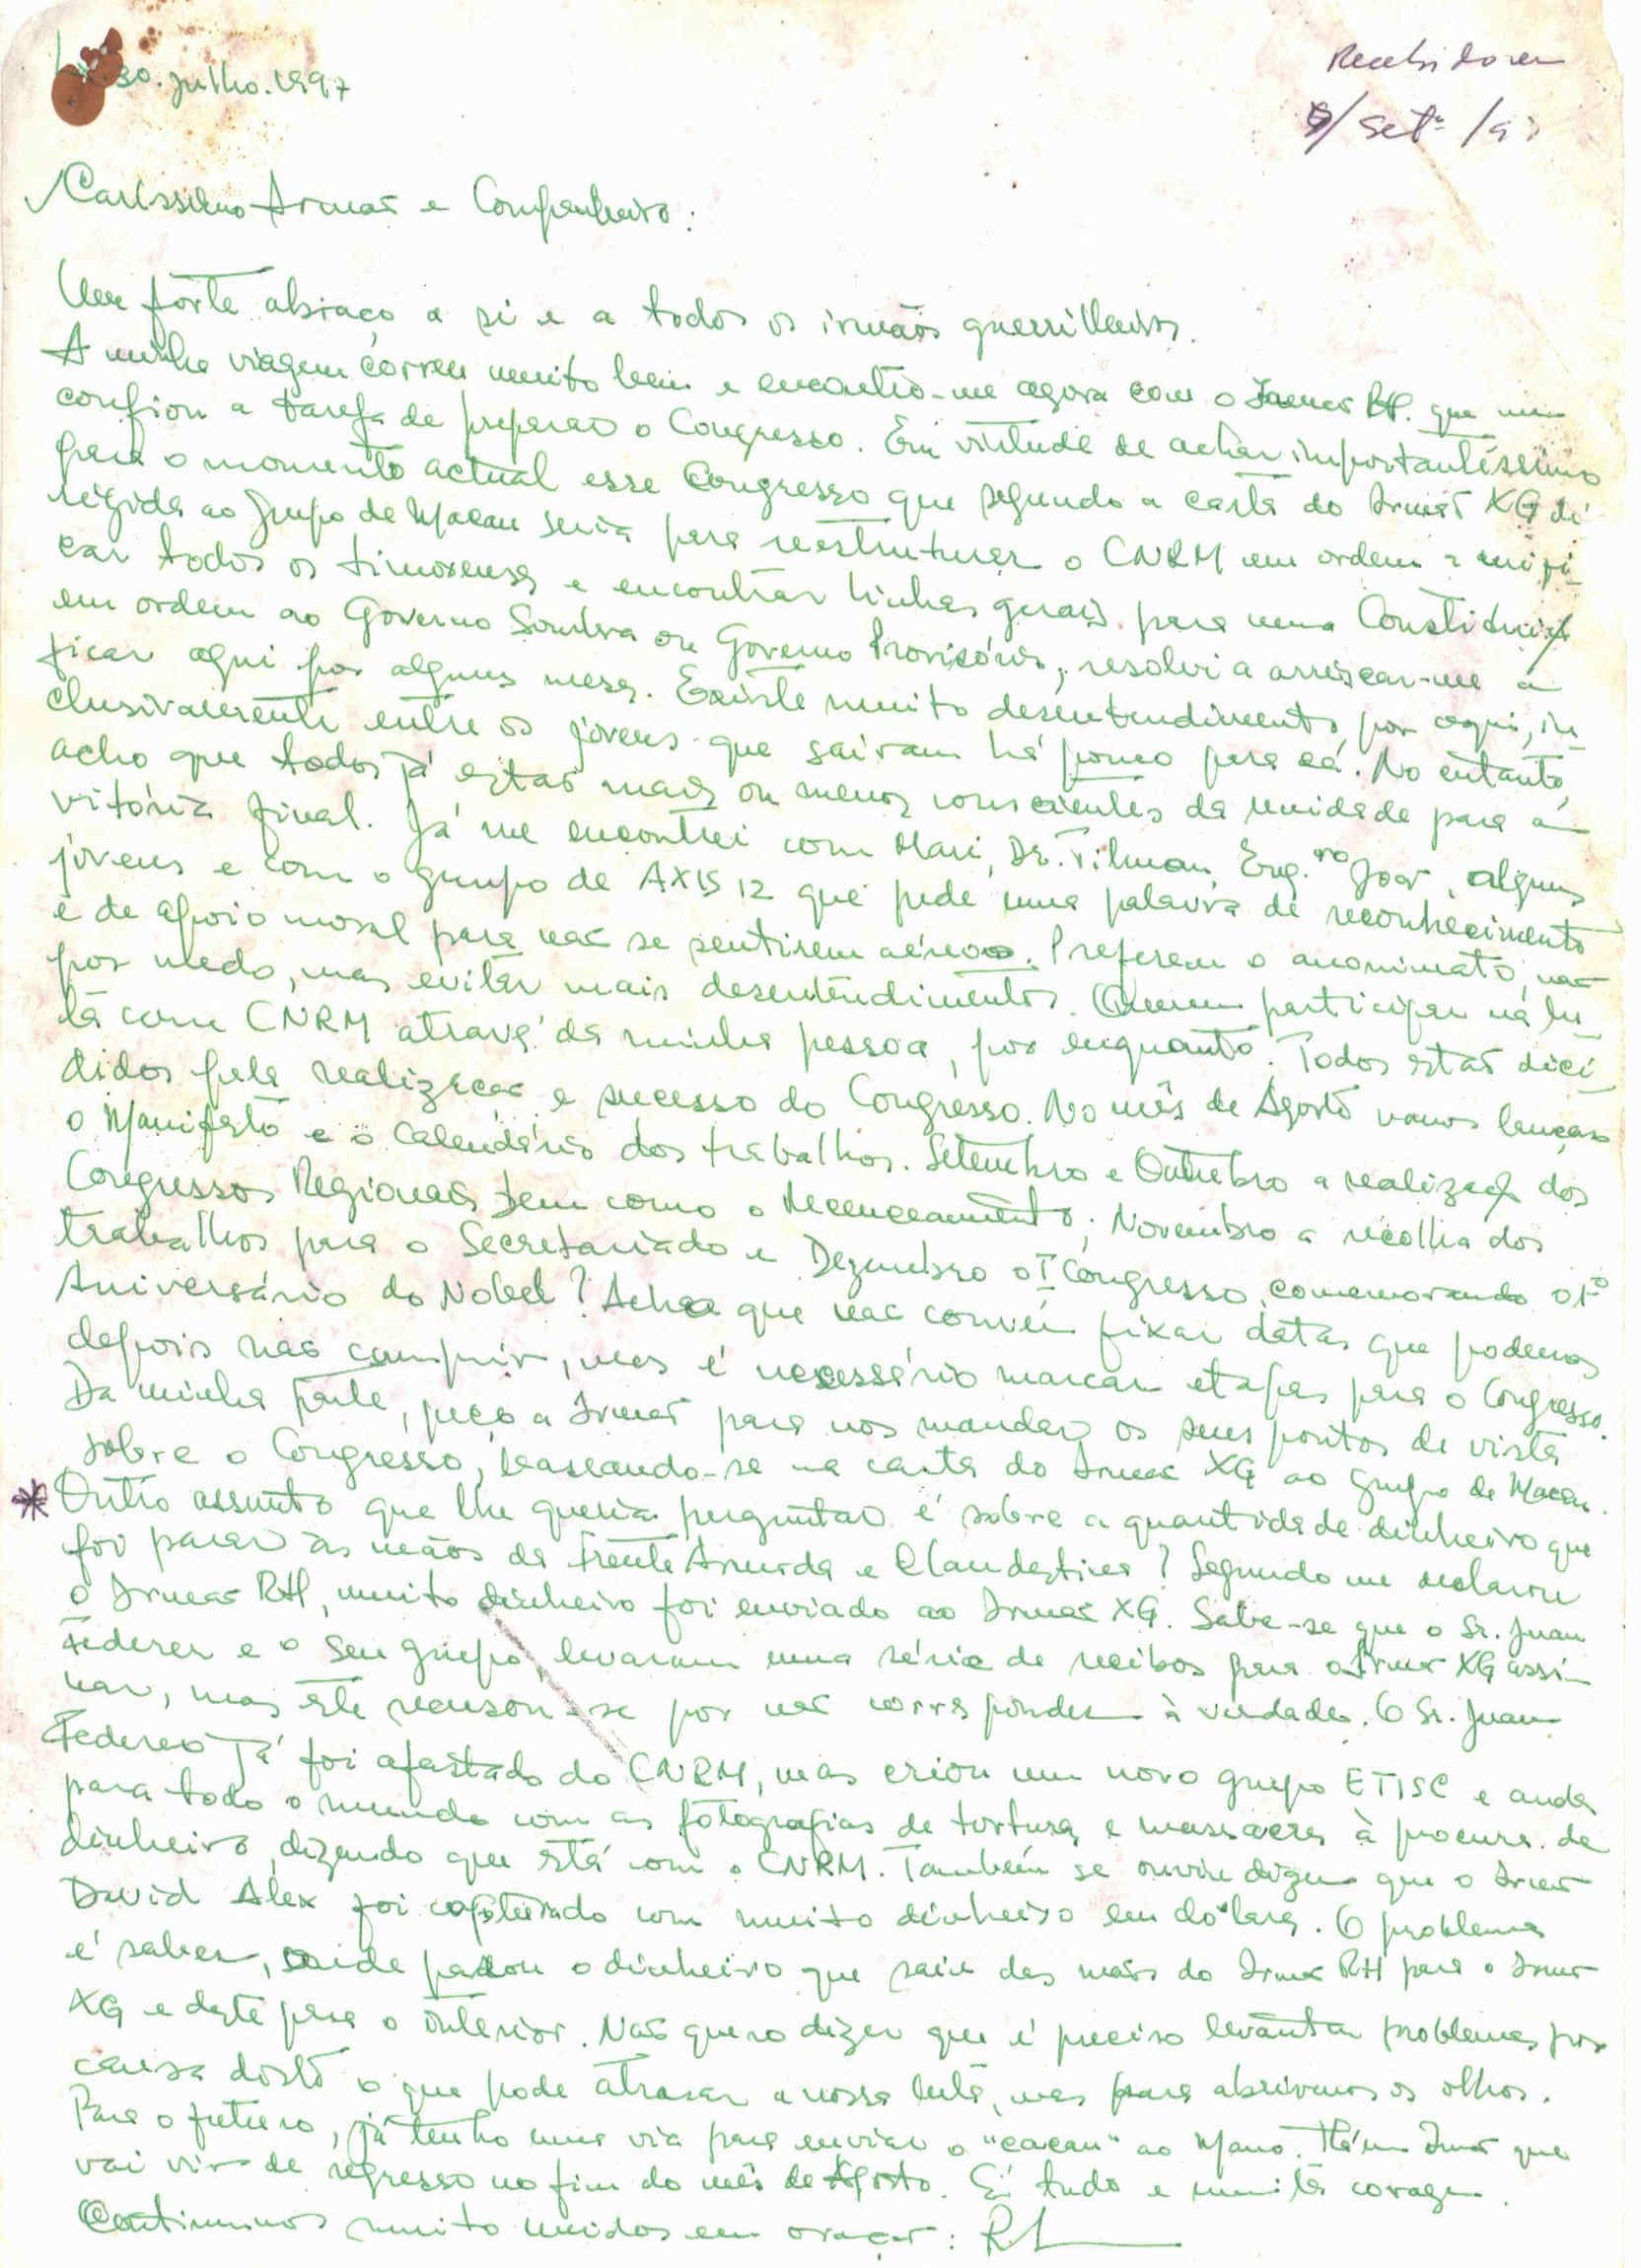 30. Julho. 1997
Recebido em
9/setº/97
Caríssimo Irmão e Companheiro:
Um forte abraço a si e a todos os irmãos guerrilheiros.
A minha viagem correu muito bem e encontro-me agora com o Irmão RH. que me
confiou a tarefa de preparar o Congresso. Em virtude de achar importantíssimo
para o momento actual esse Congresso que segundo a carta do Irmão XG di-
rigida ao Grupo de Macau seria para reestruturar o CNRM em ordem a unifi-
car todos os timorenses e encontrar linhas gerais para uma Constituição
em ordem ao Governo Sombra ou Governo Provisório, resolvi a arriscar-me a
ficar aqui por alguns meses. Existe muito desentendimento por aqui, in-
clusivamente entre os jovens que sairam há pouco para cá. No entanto,
acho que todos já estão mais ou menos conscientes da unidade para a
vitória final. Já me encontrei com Mari, Dr. Tilman, Eng.ro João, alguns
jovens e com o grupo de AXIS 12 que pede uma palavra de reconhecimento
e de apoio moral para não se sentirem aéreos. Preferem o anonimato, não
por medo, mas evitar mais desentendimentos. Querem participar na lu-
ta com CNRM através da minha pessoa, por enquanto. Todos estão deci-
didos pela realização e sucesso do Congresso. No mês de Agosto vamos lançar
o Manifesto e o Calendário dos trabalhos. Setembro e Outubro a realização dos
Congressos Regionais bem como o Recenceamento; Novembro a recolha dos
trabalhos para o Secretariado e Dezembro o I Congresso, comemorando o 1º
Aniversário do Nobel? Acho que não convém fixar datas que podemos
depois não cumprir, mas é necessário marcar etapas para o Congresso.
Da minha parte, peço a Irmão para nos mandar os seus pontos de vista
sobre o Congresso, baseando-se na carta do Irmão XG ao Grupo de Macau.
* Outro assunto que lhe queria perguntar é sobre a quantidade dinheiro que
foi parar às mãos da Frente Armada e Clandestina? Segundo me declarou
o Irmão RH, muito dinheiro foi enviado ao Irmão XG. Sabe-se que o Sr. Juan
Federer e o seu grupo, levaram uma série de recibos para o Irmão XG assi-
nar, mas este recusou-se por não corresponder à verdade. O Sr. Juan
Federer já foi afastado do CNRM, mas criou um novo grupo ETISC e anda
para todo o mundo com as fotografias de torturas e massacres à procura de
dinheiro, dizendo que está com o CNRM. Também se ouviu dizer que o Irmão
David Alex foi capturado com muito dinheiro em dólares. O problema
é saber, onde parou o dinheiro que saiu das mãos do Irmão RH para o Irmão
XG e deste para o interior. Não quero dizer que é preciso levantar problemas por
causa disto o que pode atrasar a nossa luta, mas para abrirmos os olhos.
Para o futuro, já tenho uma via para enviar o "cacau" ao Mano. Há um Irmão que
vai vir de regresso no fim do mês de Agosto. É tudo e muita coragem.
Continuamos muito unidos em oração: